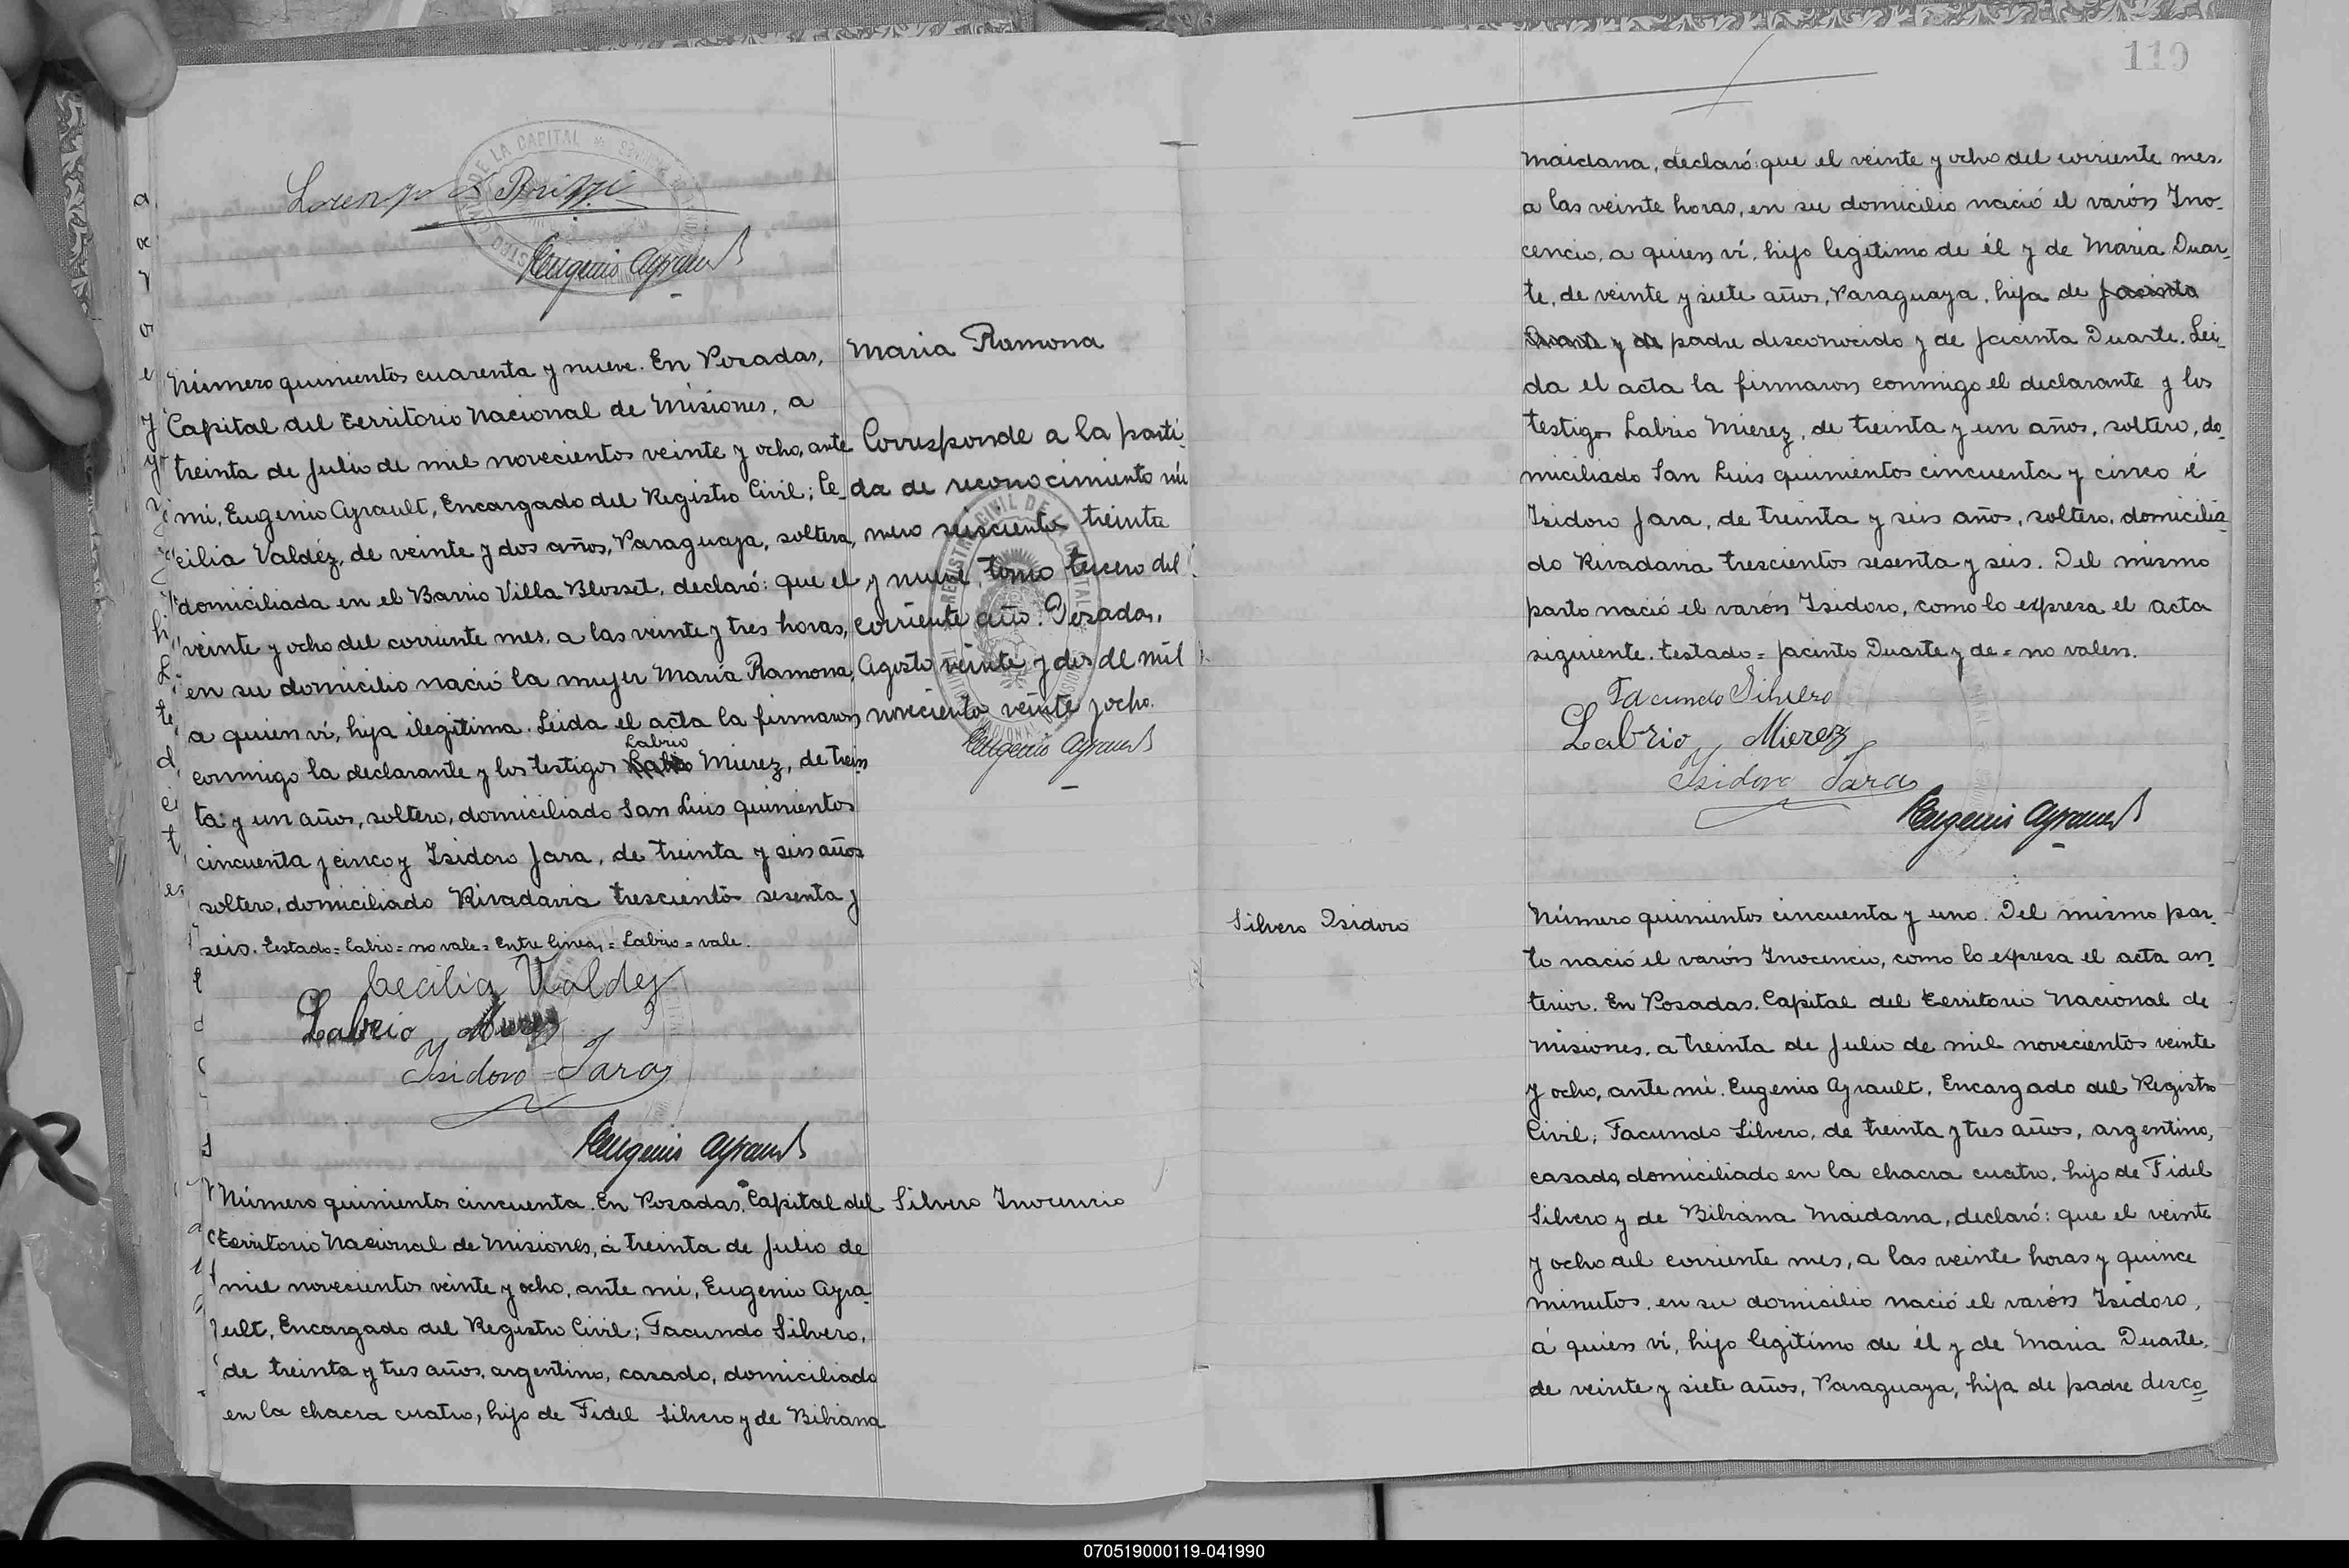 Lorenzo
Eugenio Ayrault
Maria Ramona
Número quinientos cuarenta y nueve. En Posadas,
Capital del Territorio Nacional de Misiones, a
treinta de Julio de mil novecientos veinte y ocho, ante
mi, Eugenio Ayrault, Encargado del Registro Civil; Ce-
cilia Valdéz, de veinte y dos años, Paraguaya, soltera,
domiciliada en el Barrio Villa Blosset, declaró: que el
veinte y ocho del corriente mes, a las veinte y tres horas,
en su domicilio nació la mujer María Ramona,
a quien ví, hija ilegitima. Leida el acta la firmaron
Labrio
conmigo la declarante y los testigos Labio Mierez, de trein
ta y un años, soltero, domiciliado San Luis quinientos
cincuenta y cinco y Isidoro Jara, de treinta y seis años
soltero, domiciliado Rivadavia trescientos sesenta y
seis. Testado = Labio = no vale = Entre lineas = Labrio = vale.
Corresponde a la parti-
da de reconocimiento nú
mero seiscientos treinta
y nueve, tomo tercero del
corriente año. Posadas,
Agosto veinte y dos de mil
noveciento veinte y ocho.
Eugenio Ayrault
REGISTRO CIVIL DE LA CAPITAL
Cecilia Valdez
Labrio Mierez
Isidoro Jara
Eugenio Ayrault
Silvero Inocencio
Número quinientos cincuenta. En Posadas, Capital del
Territorio Nacional de Misiones, á treinta de Julio de
mil novecientos veinte y ocho, ante mi, Eugenio Ayra-
ult, Encargado del Registro Civil; Facundo Silvero,
de treinta y tres años, argentino, casado, domiciliado
en la chacra cuatro, hijo de Fidel Silvero y de Bibiana
119
Maidana, declaró: que el veinte y ocho del corriente mes.
a las veinte horas, en su domicilio nació el varón Ino-
cencio, a quien ví, hijo legitimo de él y de Maria Duar-
te, de veinte y siete años, Paraguaya, hija de Jacinto
Duarte y de padre desconocido y de Jacinta Duarte. Lei-
da el acta la firmaron conmigo el declarante y los
testigos Labrio Mierez, de treinta y un años, soltero, do-
miciliado San Luis quinientos cincuenta y cinco é
Isidoro Jara, de treinta y seis años, soltero, domicilia-
do Rivadavia trescientos sesenta y seis. Del mismo
parto nació el varón Isidoro, como lo expresa el acta
siguiente. Testado = Jacinto Duarte y de = no valen.
Facundo Silvero
Labrio Mierez
Isidoro Jara
Eugenio Ayrault
Silvero Isidoro
Número quinientos cincuenta y uno. Del mismo par-
to nació el varón Inocencio, como lo expresa el acta an-
terior. En Posadas, Capital del Territorio Nacional de
Misiones, a treinta de Julio de mil novecientos veinte
y ocho, ante mi. Eugenio Ayrault, Encargado del Registro
Civil; Facundo Silvero, de treinta y tres años, argentino,
casado, domiciliado en la chacra cuatro, hijo de Fidel
Silvero y de Bibiana Maidana, declaró: que el veinte
y ocho del corriente mes, a las veinte horas y quince
minutos, en su domicilio nació el varón Isidoro,
á quien ví, hijo legitimo de él y de Maria Duarte,
de veinte y siete años, Paraguaya, hija de padre desco-
070519000119-041990